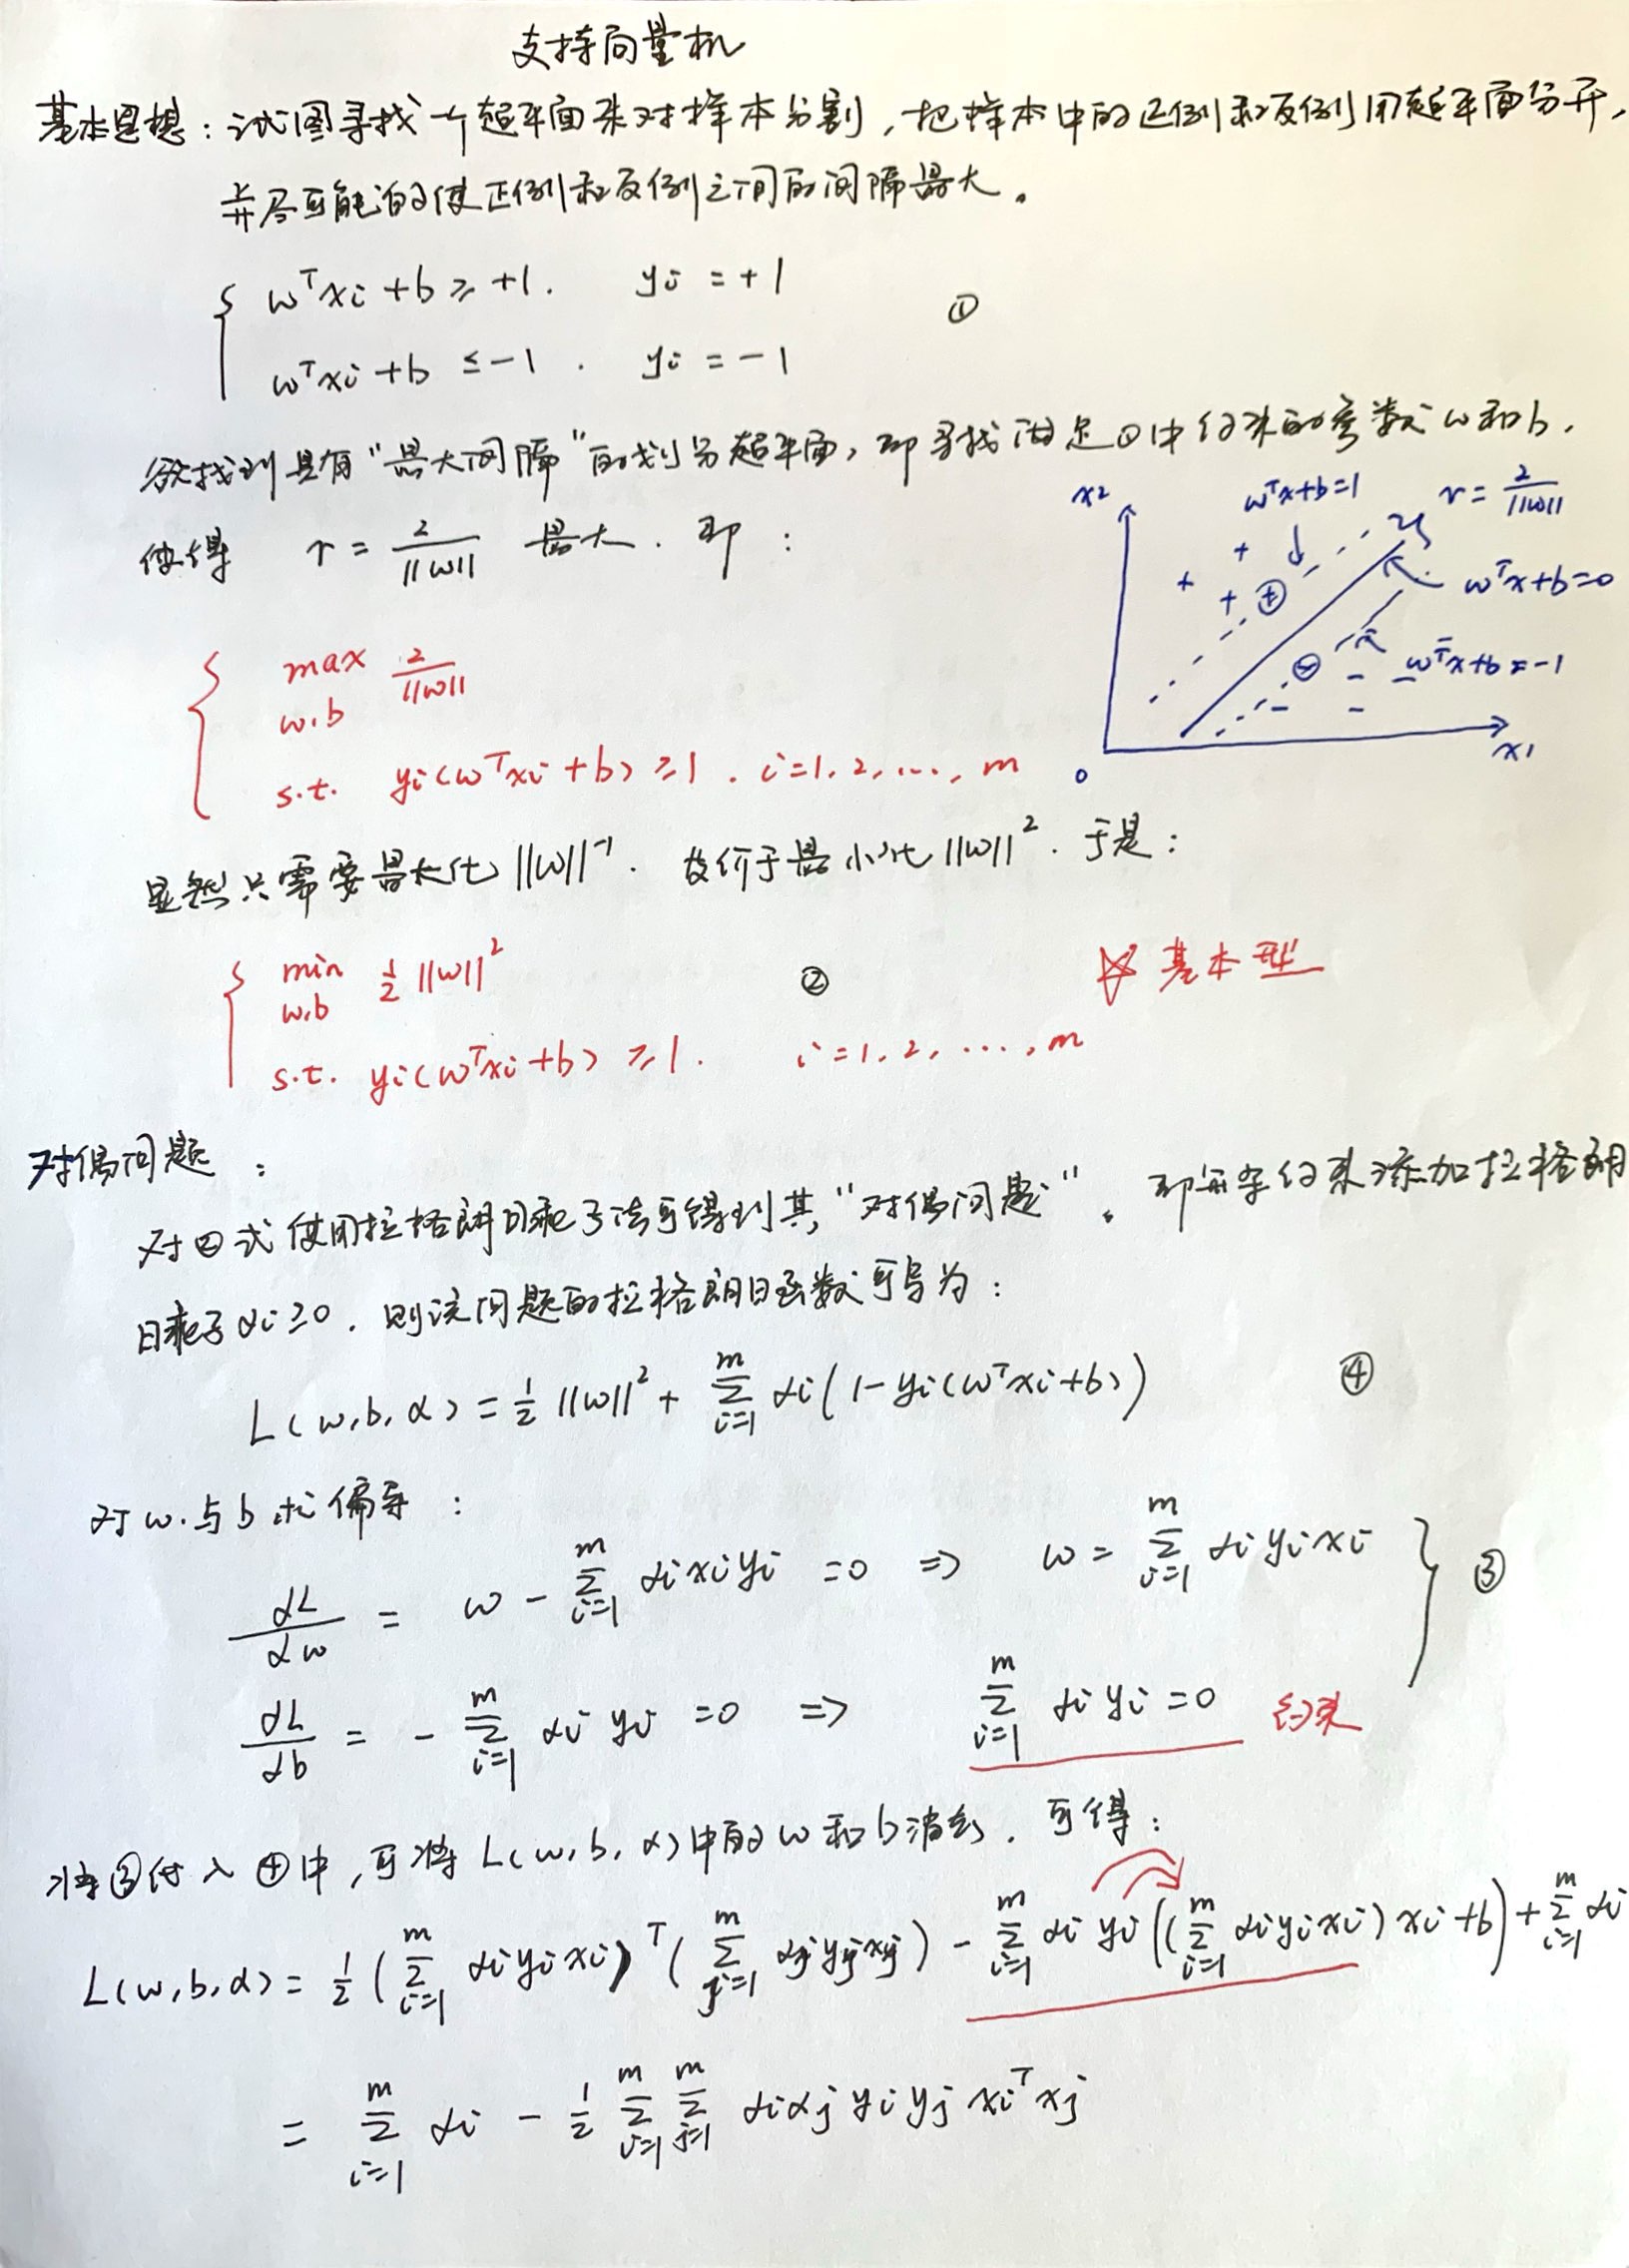 支持向量机
基本思想：试图寻找一个超平面来对样本分割，把样本中的正例和反例用超平面分开，
并尽可能的使正例和反例之间的间隔最大。
wᵀxi + b ≥ +1. yi = +1
①
wᵀxi + b ≤ -1 . yi = -1
欲找到具有“最大间隔”的划分超平面，即寻找满足①中约束的参数w和b，
使得 r = 2/||w|| 最大. 即：
x2
wᵀx+b=1
r = 2/||w||
wᵀx+b=0
wᵀx+b=-1
0
x1
max 2/||w||
w,b
s.t. yi(wᵀxi + b) ≥ 1 . i=1, 2, ..., m
显然只需要最大化 ||w||⁻¹. 等价于最小化 ||w||². 于是：
min ½ ||w||²
w,b
②
☆ 基本型
s.t. yi(wᵀxi + b) ≥ 1. i=1, 2, ..., m
对偶问题：
对②式使用拉格朗日乘子法可得到其“对偶问题”。即每条约束添加拉格朗
日乘子 αi ≥ 0. 则该问题的拉格朗日函数可写为：
L(w, b, α) = ½ ||w||² + Σ_{i=1}^{m} αi(1 - yi(wᵀxi + b)) ④
对 w. 与 b 求偏导：
∂L/∂w = w - Σ_{i=1}^{m} αi xi yi = 0 ⇒ w = Σ_{i=1}^{m} αi yi xi
③
∂L/∂b = - Σ_{i=1}^{m} αi yi = 0 ⇒ Σ_{i=1}^{m} αi yi = 0 约束
将③代入④中, 可将 L(w, b, α) 中的 w 和 b 消去. 可得：
L(w, b, α) = ½ (Σ_{i=1}^{m} αi yi xi)ᵀ (Σ_{j=1}^{m} αj yj xj) - Σ_{i=1}^{m} αi yi ((Σ_{i=1}^{m} αi yi xi) xi + b) + Σ_{i=1}^{m} αi
= Σ_{i=1}^{m} αi - ½ Σ_{i=1}^{m} Σ_{j=1}^{m} αi αj yi yj xiᵀ xj